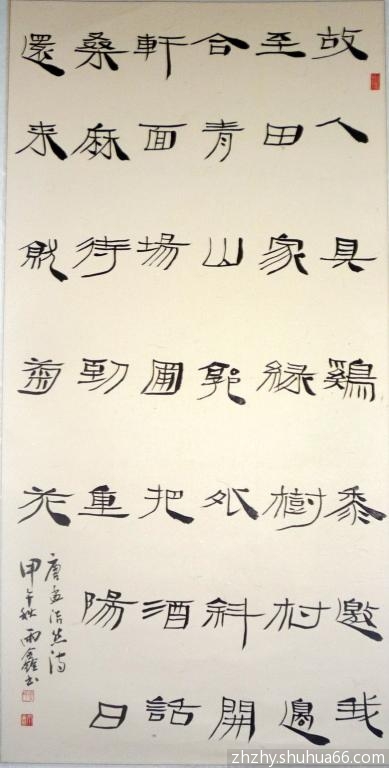 故人具鷄黍邀我
至田家緑樹村邊
合青山郭外斜開
軒面場圃把酒話
桑麻待到重陽日
還来就菊花
唐孟浩然诗
甲午秋雨鑫书
zhzhy.shuhua66.com